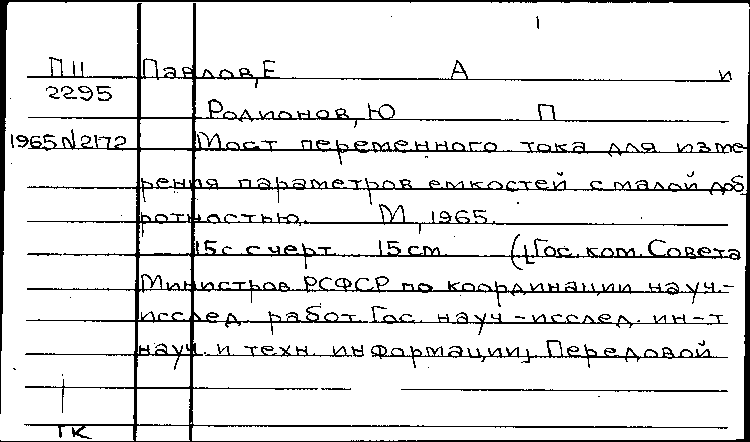 1
П11 Павлов, Е А и
2295
Родионов, Ю П
1965 N2172 Мост переменного тока для изме-
рения параметров емкостей с малой доб-
ротностью. М, 1965.
15с с черт 15 см ([Гос. ком. Совета
Министров РСФСР по координации науч.-
исслед. работ. Гос. науч-исслед. ин-т
науч. и техн. информации] Передовой
ТК